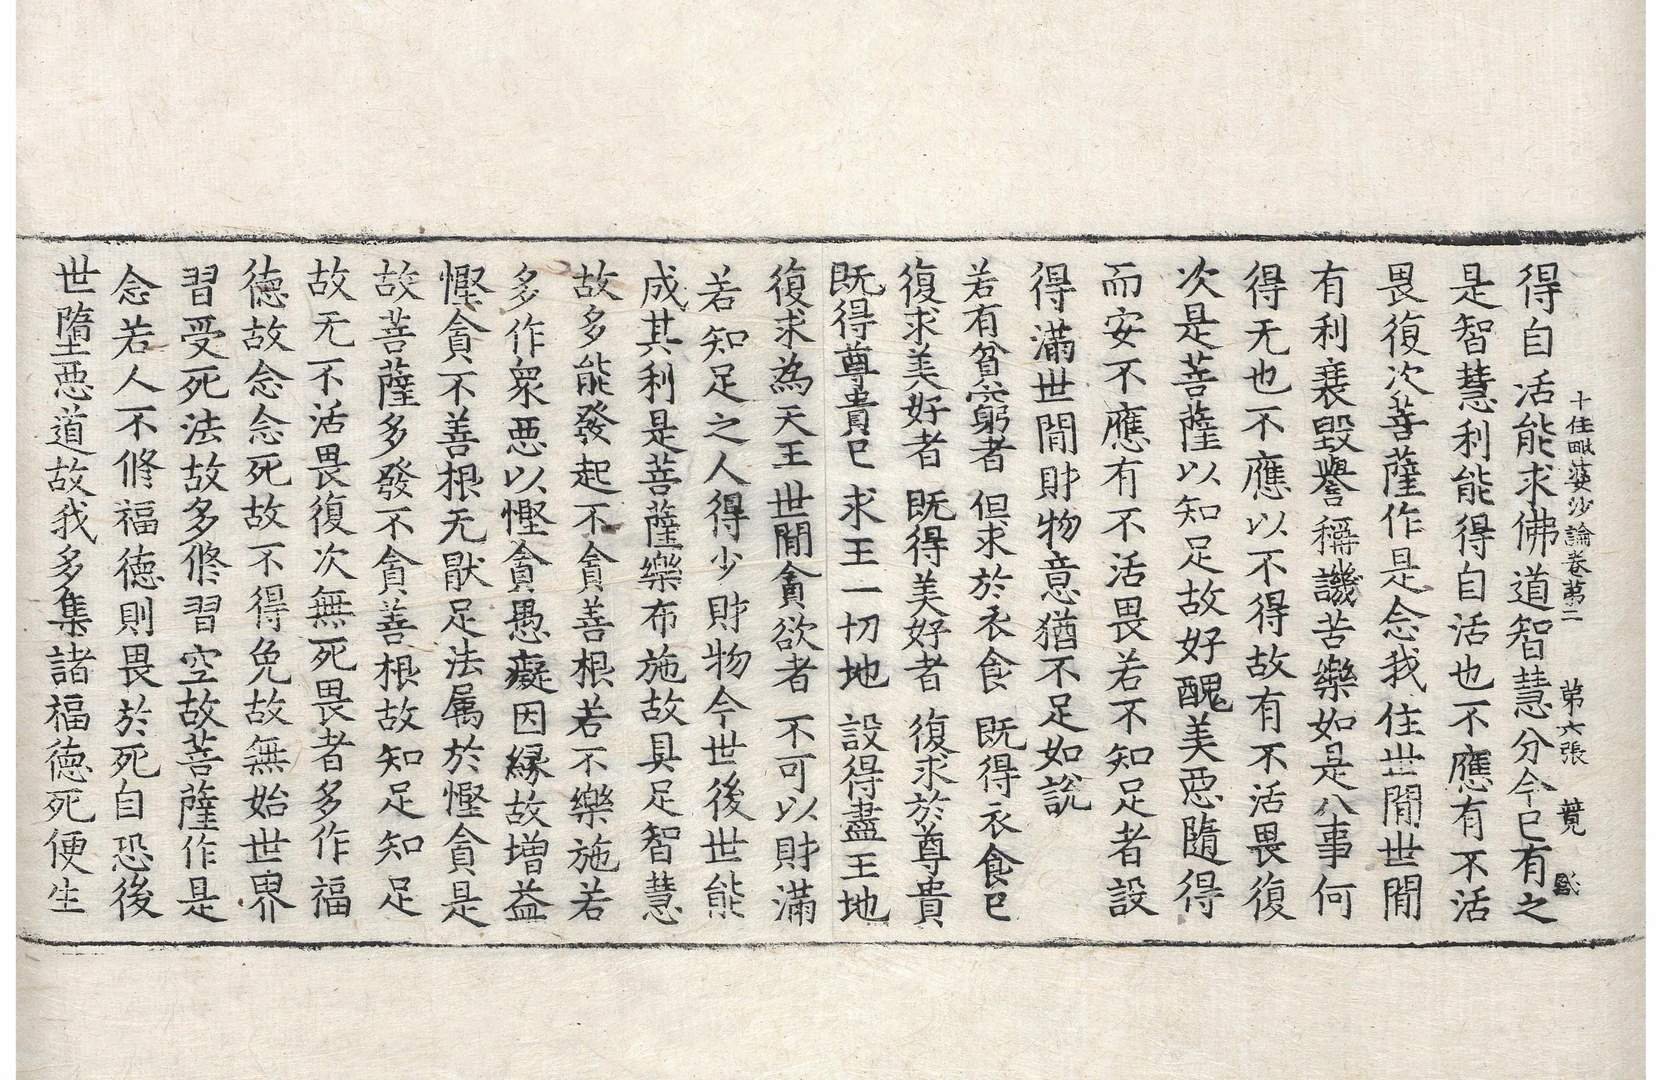 十住毗婆沙論卷苐二 苐六張 蕒
得自活能求佛道智慧分今已有之
是智慧利能得自活也不應有不活
畏復次菩薩作是念我住世間世間
有利衰毀譽稱譏苦樂如是八事何
得无也不應以不得故有不活畏復
次是菩薩以知足故好醜美惡隨得
而安不應有不活畏若不知足者設
得滿世間財物意猶不足如說
若有貧窮者 但求於衣食 既得衣食已
復求美好者 既得美好者 復求於尊貴
既得尊貴已 求王一切地 設得盡王地
復求為天王 世間貪欲者 不可以財滿
若知足之人得少財物今世後世能
成其利是菩薩樂布施故具足智慧
故多能發起不貪善根若不樂施若
多作衆惡以慳貪愚癡因緣故增益
慳貪不善根无猒足法属於慳貪是
故菩薩多發不貪善根故知足知足
故无不活畏復次無死畏者多作福
德故念念死故不得免故無始世界
習受死法故多修習空故菩薩作是
念若人不修福德則畏於死自恐後
世墮惡道故我多集諸福德死便生